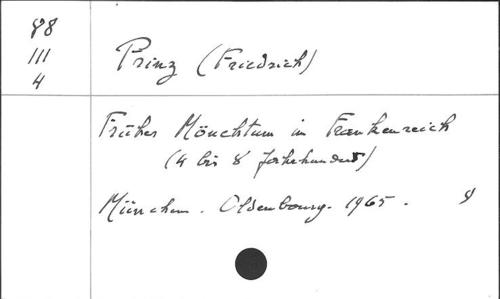 88
III
4
Prinz (Friedrich)
Frühes Mönchtum im Frankenreich
(4 bis 8 Jahrhundert)
München. Oldenbourg. 1965.